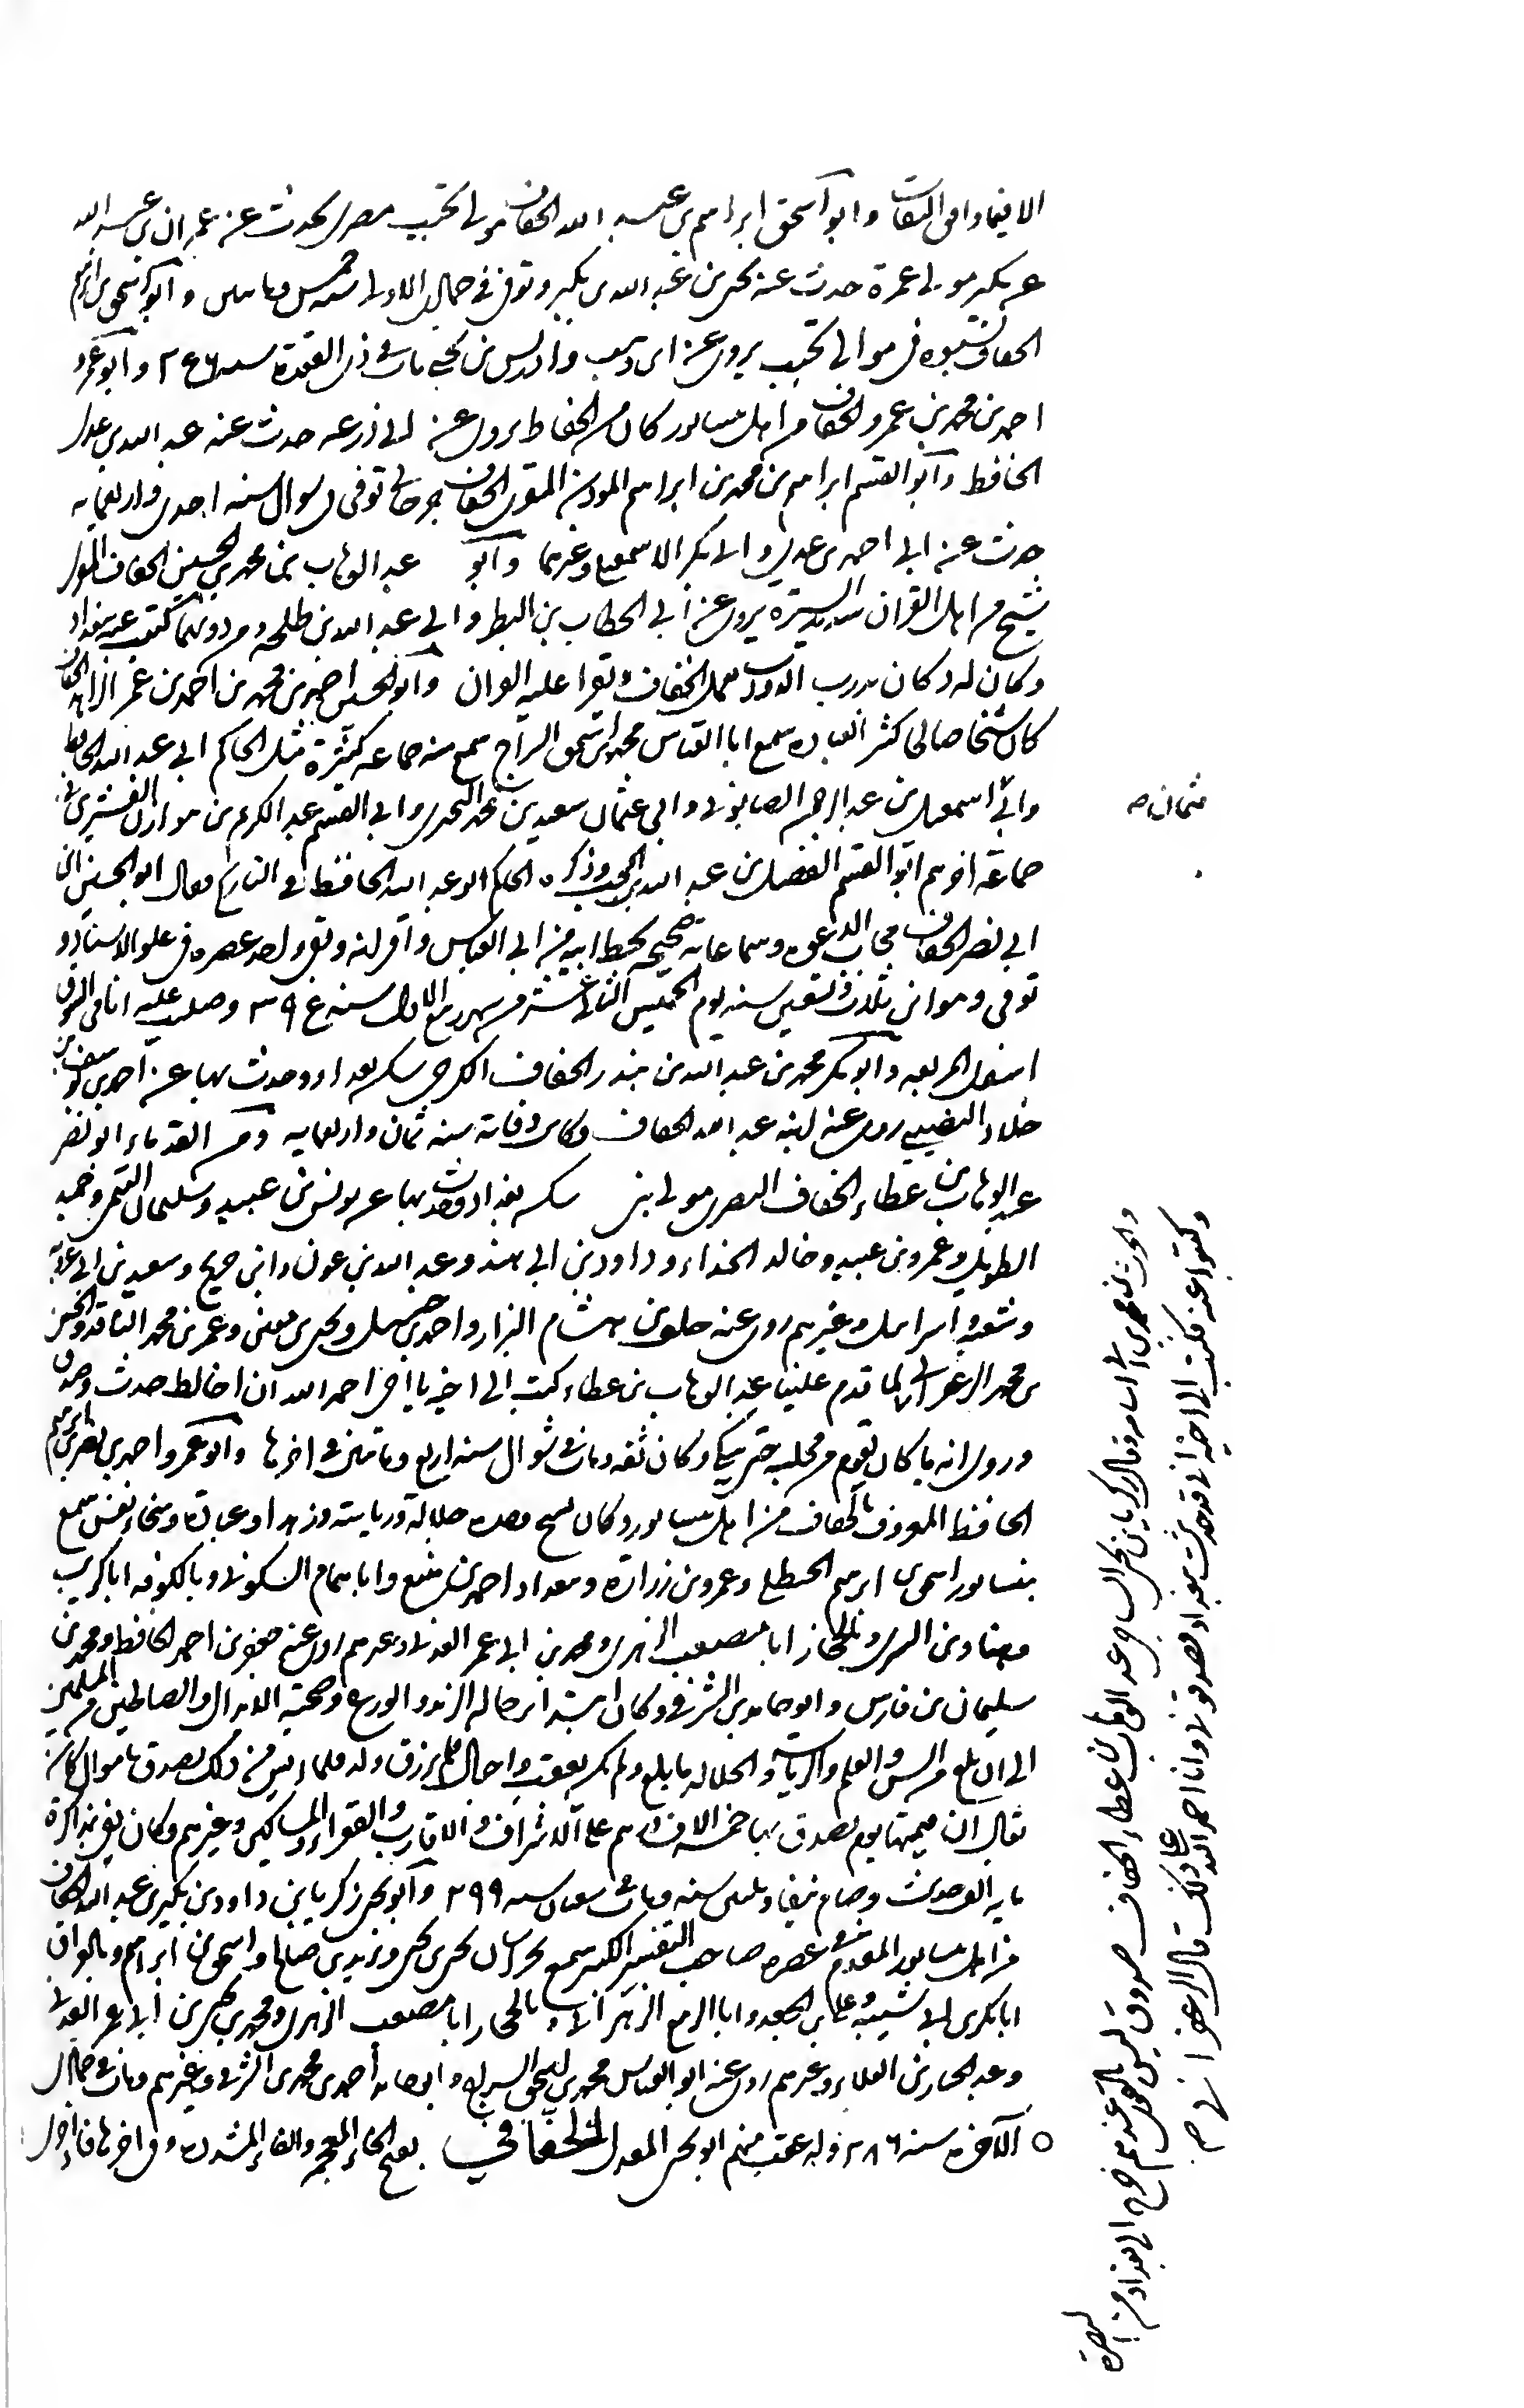 الاقفاء وافى الثقات وابو اسحق ابراهيم بن عبد الله الخفاف مولى تجيب مصرى يحدث عن عمران بن عبد الله
عن بكير مولى عمرة حدث عنه يحيى بن عبد الله بن بكير وتوفى فى جمادى الاولى سنة خمس ومائتين وابو اسحق ابراهيم
الخفاف نسبوه فى موالى تجيب يروى عن ابن وهب وادريس بن يحيى مات فى ذى القعدة سنة ٢٤٦ وابو عمرو
احمد بن محمد بن عمرو الخفاف من اهل نيسابور كان من الحفاظ يروى عن ابى زرعه حدث عنه عبد الله بن عدى
الحافظ وابو القسم ابراهيم بن محمد بن ابراهيم المؤدب المقرى الخفاف جرجانى توفى فى شوال سنه احدى واربعمايه
حدث عن ابى احمد بن عدى وابى بكر الاسمعيلى وغيرهما وابو عبد الوهاب بن محمد بن الحسين الخفاف المقرى
شيخ من اهل القران سديد السيرة يروى عن ابى الخطاب بن البطر وابى عبد الله بن طلحه ومن دونهما كتبت عنه ببغداد
وكان له دكان بدرب الدواب يعمل الخفاف ويقرا عليه القران وابو الحسين احمد بن محمد بن احمد بن عمر الزاهد الخفاف
كان شيخا صالحا كثير العباده سمع ابا العباس محمد بن اسحق السراج سمع منه جماعه كثيرة مثل الحاكم ابى عبد الله الحافظ
وابى اسمعيل بن عبد الرحمن الصابونى وابى عثمان سعيد بن محمد البحيرى وابى القسم عبد الكريم بن هوازن القشيرى فى
عثمان صح
جماعة اخرهم ابو القسم الفضل بن عبد الله بن المحب وذكره الحاكم ابو عبد الله الحافظ فى التاريخ فقال ابو الحسين بن
ابى نصر الخفاف مجاب الدعوه وسماعاته صحيحه بخط ابيه من ابى العباس واقرانه وبقى واحد عصره فى علو الاسناد و
توفى وهو ابن ثلاث وتسعين سنه يوم الخميس الثانى عشر من شهر ربيع الاول سنه ٣٩٤ وصلى عليه
وابو بكر محمد بن عبد الله بن بندر الخفاف الكرجى سكن بغداد وحدث بها عن احمد بن يوسف بن
خلاد النصيبى روى عنه ابنه عبد الله الخفاف وكان وفاته سنه ثمان واربعمايه ومن القدماء ابو نصر
عبد الوهاب بن عطاء الخفاف البصرى مولى بنى سكن بغداد وحدث بها عن يونس بن عبيد وسليمان التيمى وحميد
الطويل وعمرو بن عبيد وخالد الحذاء وداود بن ابى هند وعبد الله بن عون وابن جريج وسعيد بن ابى عروبة
وشعبه واسرائيل وغيرهم روى عنه خلف بن هشام البزار واحمد بن حنبل ويحيى بن معين وعمرو بن محمد الناقد والحسن
بن محمد الزعفرانى لما قدم علينا عبد الوهاب بن عطاء كتب الى اخيه يا اخى احمد الله ان اخاك حدث وصدق
وروى انه ما كان يقوم من مجلسه حتى يبكى وكان ثقه ومات فى شوال سنه اربع ومائتين فى اخرها وابو عمرو احمد بن نصر بن ابراهيم
الحافظ المعروف بالخفاف من اهل نيسابور وكان شيخ عصره جلالة ورياسته وزهدا وعبادة وسخاء نفس سمع
بنيسابور اسحق بن ابرهيم الحنظلى وعمرو بن زرارة وببغداد احمد بن منيع وابا همام السكونى وبالكوفه ابا كريب
وهناد بن السرى وبالحجاز ابا مصعب الزهرى ومحمد بن ابى عمر العدنى وغيرهم روى عنه جعفر بن احمد الحافظ ومحمد بن
سليمان بن فارس وابو حامد بن الشرقى وكان ابتدا حاله الزهد والورع وصحبة الابدال والصالحين من المسلمين
الى ان بلغ من السن والعلم والرياسة والجلاله ما بلغ ولم يكن يعقب فلم يرزق ولد فلما يئس من ذلك تصدق باموال كان
يقال ان قيمتها يوم تصدق بها خمسة الاف درهم على الاشراف والاقارب والفقراء والمساكين وغيرهم وكان يفى بمذاكرة
مايه الف حديث وصام نيفا وثلثين سنه ومات فى شعبان سنه ٢٩٩ وابو يحيى زكريا بن داود بن بكير بن عبد الله الخفاف
من اهل نيسابور المقدم فى عصره صاحب التفسير الكبير سمع بخراسان يحيى بن يحيى ويزيد بن صالح واسحق بن ابراهيم وبالعراق
ابا بكر بن ابى شيبه وعلى بن الجعد وابا الربيع الزهرانى وبالحجاز ابا مصعب الزهرى ومحمد بن يحيى بن ابى عمر العدنى
وعبد الجبار بن العلاء وغيرهم روى عنه ابو العباس محمد بن اسحق السراج وابو حامد احمد بن محمد بن الشرقى وغيرهم ومات فى جمادى
الآخرة سنه ٢٨٦ وله عقب منهم ابو يحيى المعدل الخفافي بفتح الخاء المعجمه والفاء المشدده وفى اخرها فاء اخرى
والحرث بن محمد بن ابى اسامه وقال زكريا بن يحيى الساجى عبد الوهاب بن عطاء الخفاف صدوق ليس بالقوى عندهم خرج الى بغداد من البصرة
وكتبوا عنه فكتب الى اخيه انى قد حدثت ببغداد فصدقونى وانا احمد الله على ذلك قال الزعفرانى صح